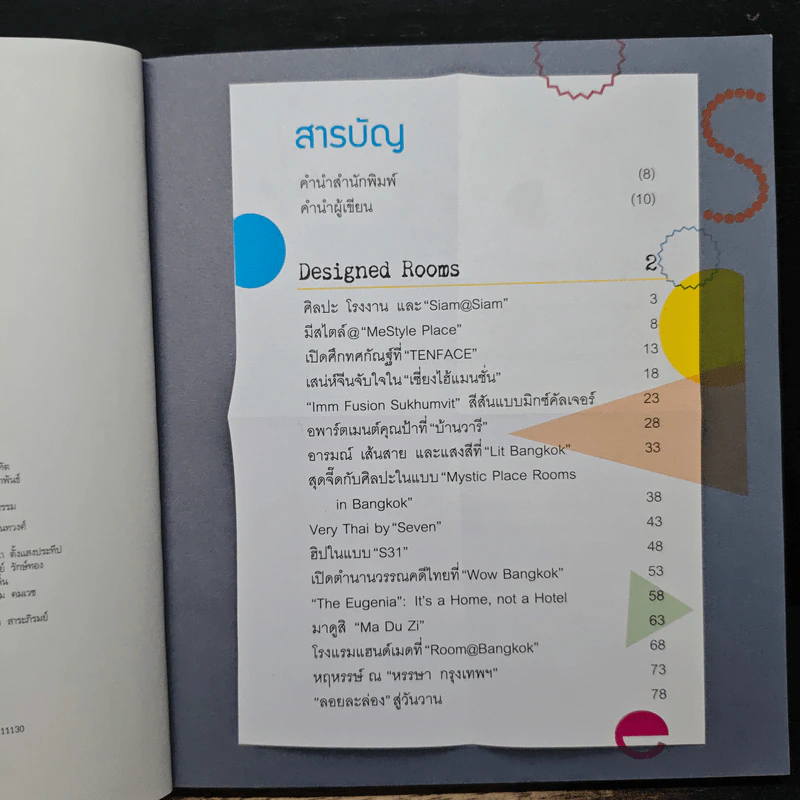 สารบัญ
คำนำสำนักพิมพ์ (8)
คำนำผู้เขียน (10)
Designed Rooms 2
ศิลปะ โรงงาน และ “Siam@Siam” 3
มีสไตล์@ “MeStyle Place” 8
เปิดศึกทศกัณฐ์ที่ “TENFACE” 13
เสน่ห์จีนจับใจใน “เซี่ยงไฮ้แมนชั่น” 18
“Imm Fusion Sukhumvit” สีสันแบบมิกซ์คัลเจอร์ 23
อพาร์ตเมนต์คุณป้าที่ “บ้านวารี” 28
อารมณ์ เส้นสาย และแสงสีที่ “Lit Bangkok” 33
สุดจี๊ดกับศิลปะในแบบ “Mystic Place Rooms
in Bangkok” 38
Very Thai by “Seven” 43
ฮิปในแบบ “S31” 48
เปิดตำนานวรรณคดีไทยที่ “Wow Bangkok” 53
“The Eugenia”: It’s a Home, not a Hotel 58
มาดูสิ “Ma Du Zi” 63
โรงแรมแฮนด์เมดที่ “Room@Bangkok” 68
หฤหรรษ์ ณ “หรรษา กรุงเทพฯ” 73
“ลอยละล่อง” สู่วันวาน 78
ตั้งแสงประทีป
รักษ์ทอง
คมเวช
สาระภิรมย์
11130